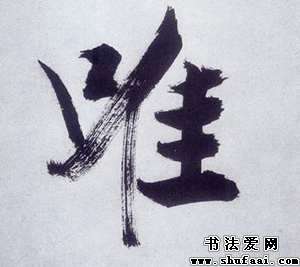 唯
书法爱网
www.shufaai.com